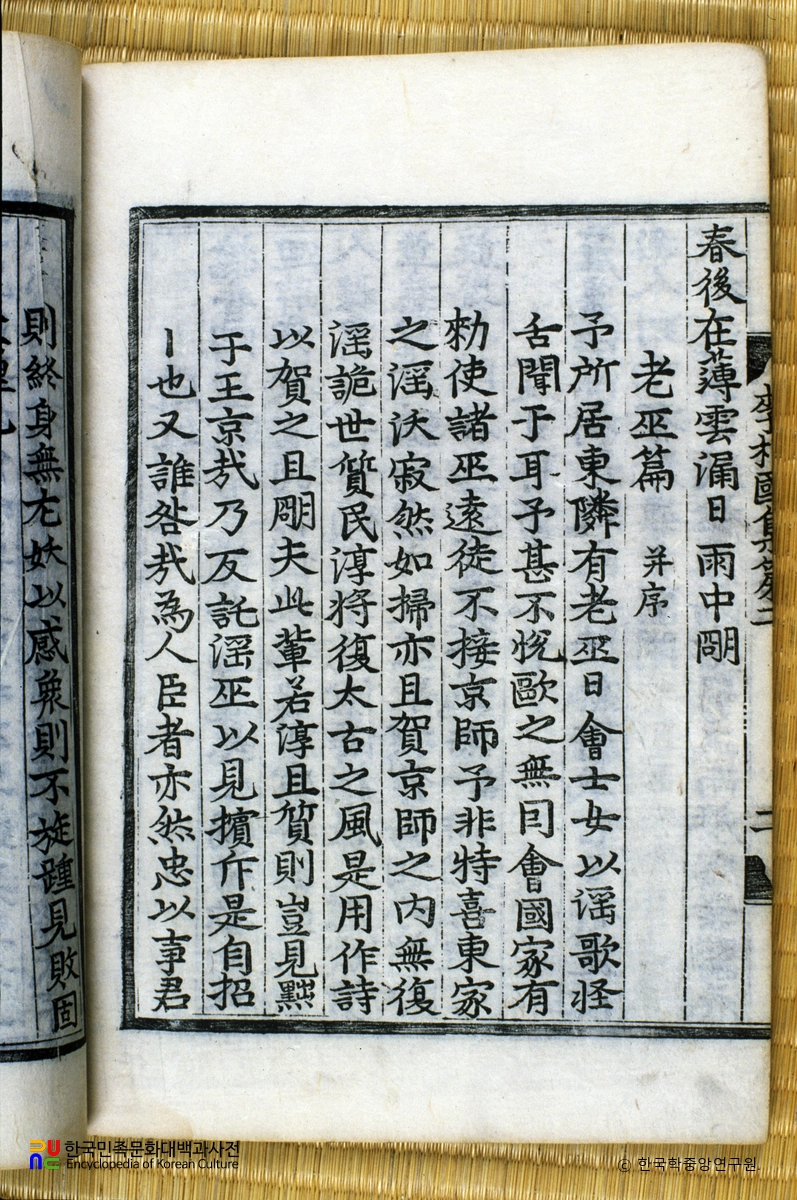 春後在薄雲漏日雨中
老巫篇 并序
予所居東隣有老巫日會士女以謡歌恠
舌聞于耳予甚不悅歐之無因會國家有
勑使諸巫遠徒不接京師予非特喜東家
之謡沃寂然如掃亦且賀京師之内無復
謡詭世質民淳将復太古之風是用作詩
以賀之且夫此輩若淳且質則豈見黜
于王京㢤乃反託謡巫以見擯斥是自招
也又誰咎㢤為人臣者亦然忠以事君
則終身無尤妖以感衆則不旋踵見敗固
李相國集
二
한국민족문화대백과사전
Encyclopedia of Korean Culture
© 한국학중앙연구원.